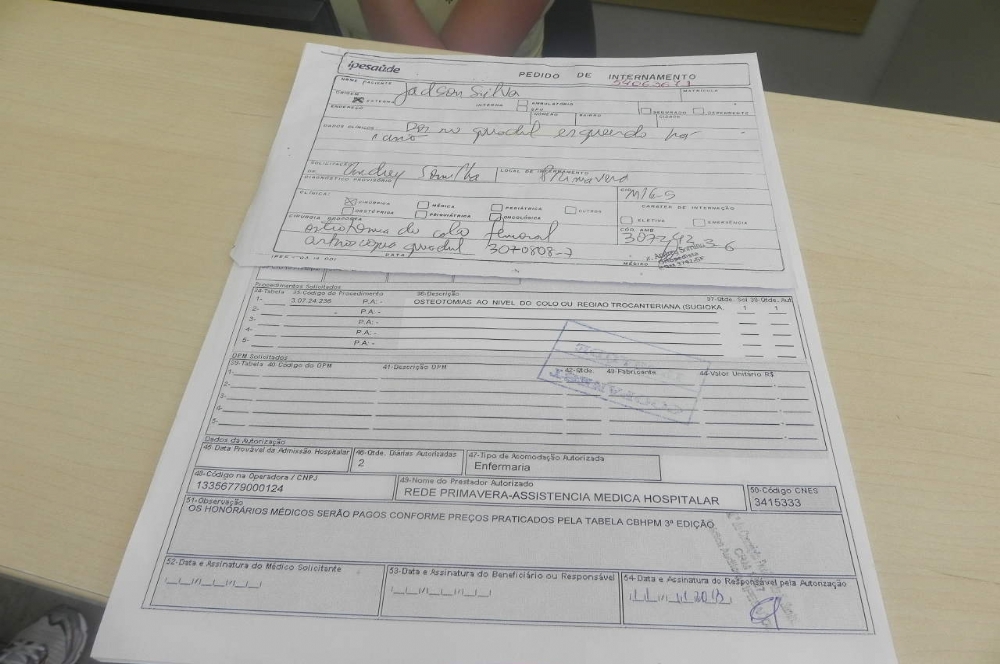 ipesaúde
PEDIDO DE INTERNAMENTO
NOME PACIENTE
MATRÍCULA
Jadson Silva
ORIGEM
EXTERNA INTERNA AMBULATÓRIO
SEGURADO DEPENDENTE
ENDEREÇO NÚMERO BAIRRO CIDADE
DADOS CLÍNICOS
Dor no quadril esquerdo há
1 ano
SOLICITAÇÃO
DR. LOCAL DE INTERNAMENTO
Primavera
DIAGNÓSTICO PROVISÓRIO
CID
M16-5
CLÍNICA:
CARATER DE INTERNAÇÃO
CIRÚRGICA MÉDICA PEDIÁTRICA OUTRAS
ELETIVA EMERGÊNCIA
OBSTÉTRICA PSIQUIÁTRICA ONCOLÓGICA
CIRURGIA PROPOSTA
COD. AMB
osteotomia do colo femoral
artroscopia quadril 3070808-7
DATA
MÉDICO
Procedimentos Solicitados
34-Tabela 35-Código do Procedimento 36-Descrição 37-Qtde. Sol 38-Qtde. Aut
1- 3.07.24.236 P.A:- OSTEOTOMIAS AO NIVEL DO COLO OU REGIAO TROCANTERIANA (SUGIOKA, 1 1
2- P.A:-
3- P.A:-
4- P.A:-
5- P.A:-
OPM Solicitados
39-Tabela 40-Código do OPM 41-Descrição OPM 42-Qtde. 43-Fabricante 44-Valor Unitário R$
1-
2-
3-
4-
5-
Dados da Autorização
45-Data Provável da Admissão Hospitalar 46-Qtde. Diárias Autorizadas 47-Tipo de Acomodação Autorizada
2 Enfermaria
48-Código na Operadora / CNPJ 49-Nome do Prestador Autorizado 50-Código CNES
13356779000124 REDE PRIMAVERA-ASSISTENCIA MEDICA HOSPITALAR 3415333
51-Observação
OS HONORÁRIOS MÉDICOS SERÃO PAGOS CONFORME PREÇOS PRATICADOS PELA TABELA CBHPM 3ª EDIÇÃO
52-Data e Assinatura do Médico Solicitante 53-Data e Assinatura do Beneficiário ou Responsável 54-Data e Assinatura do Responsável pela Autorização